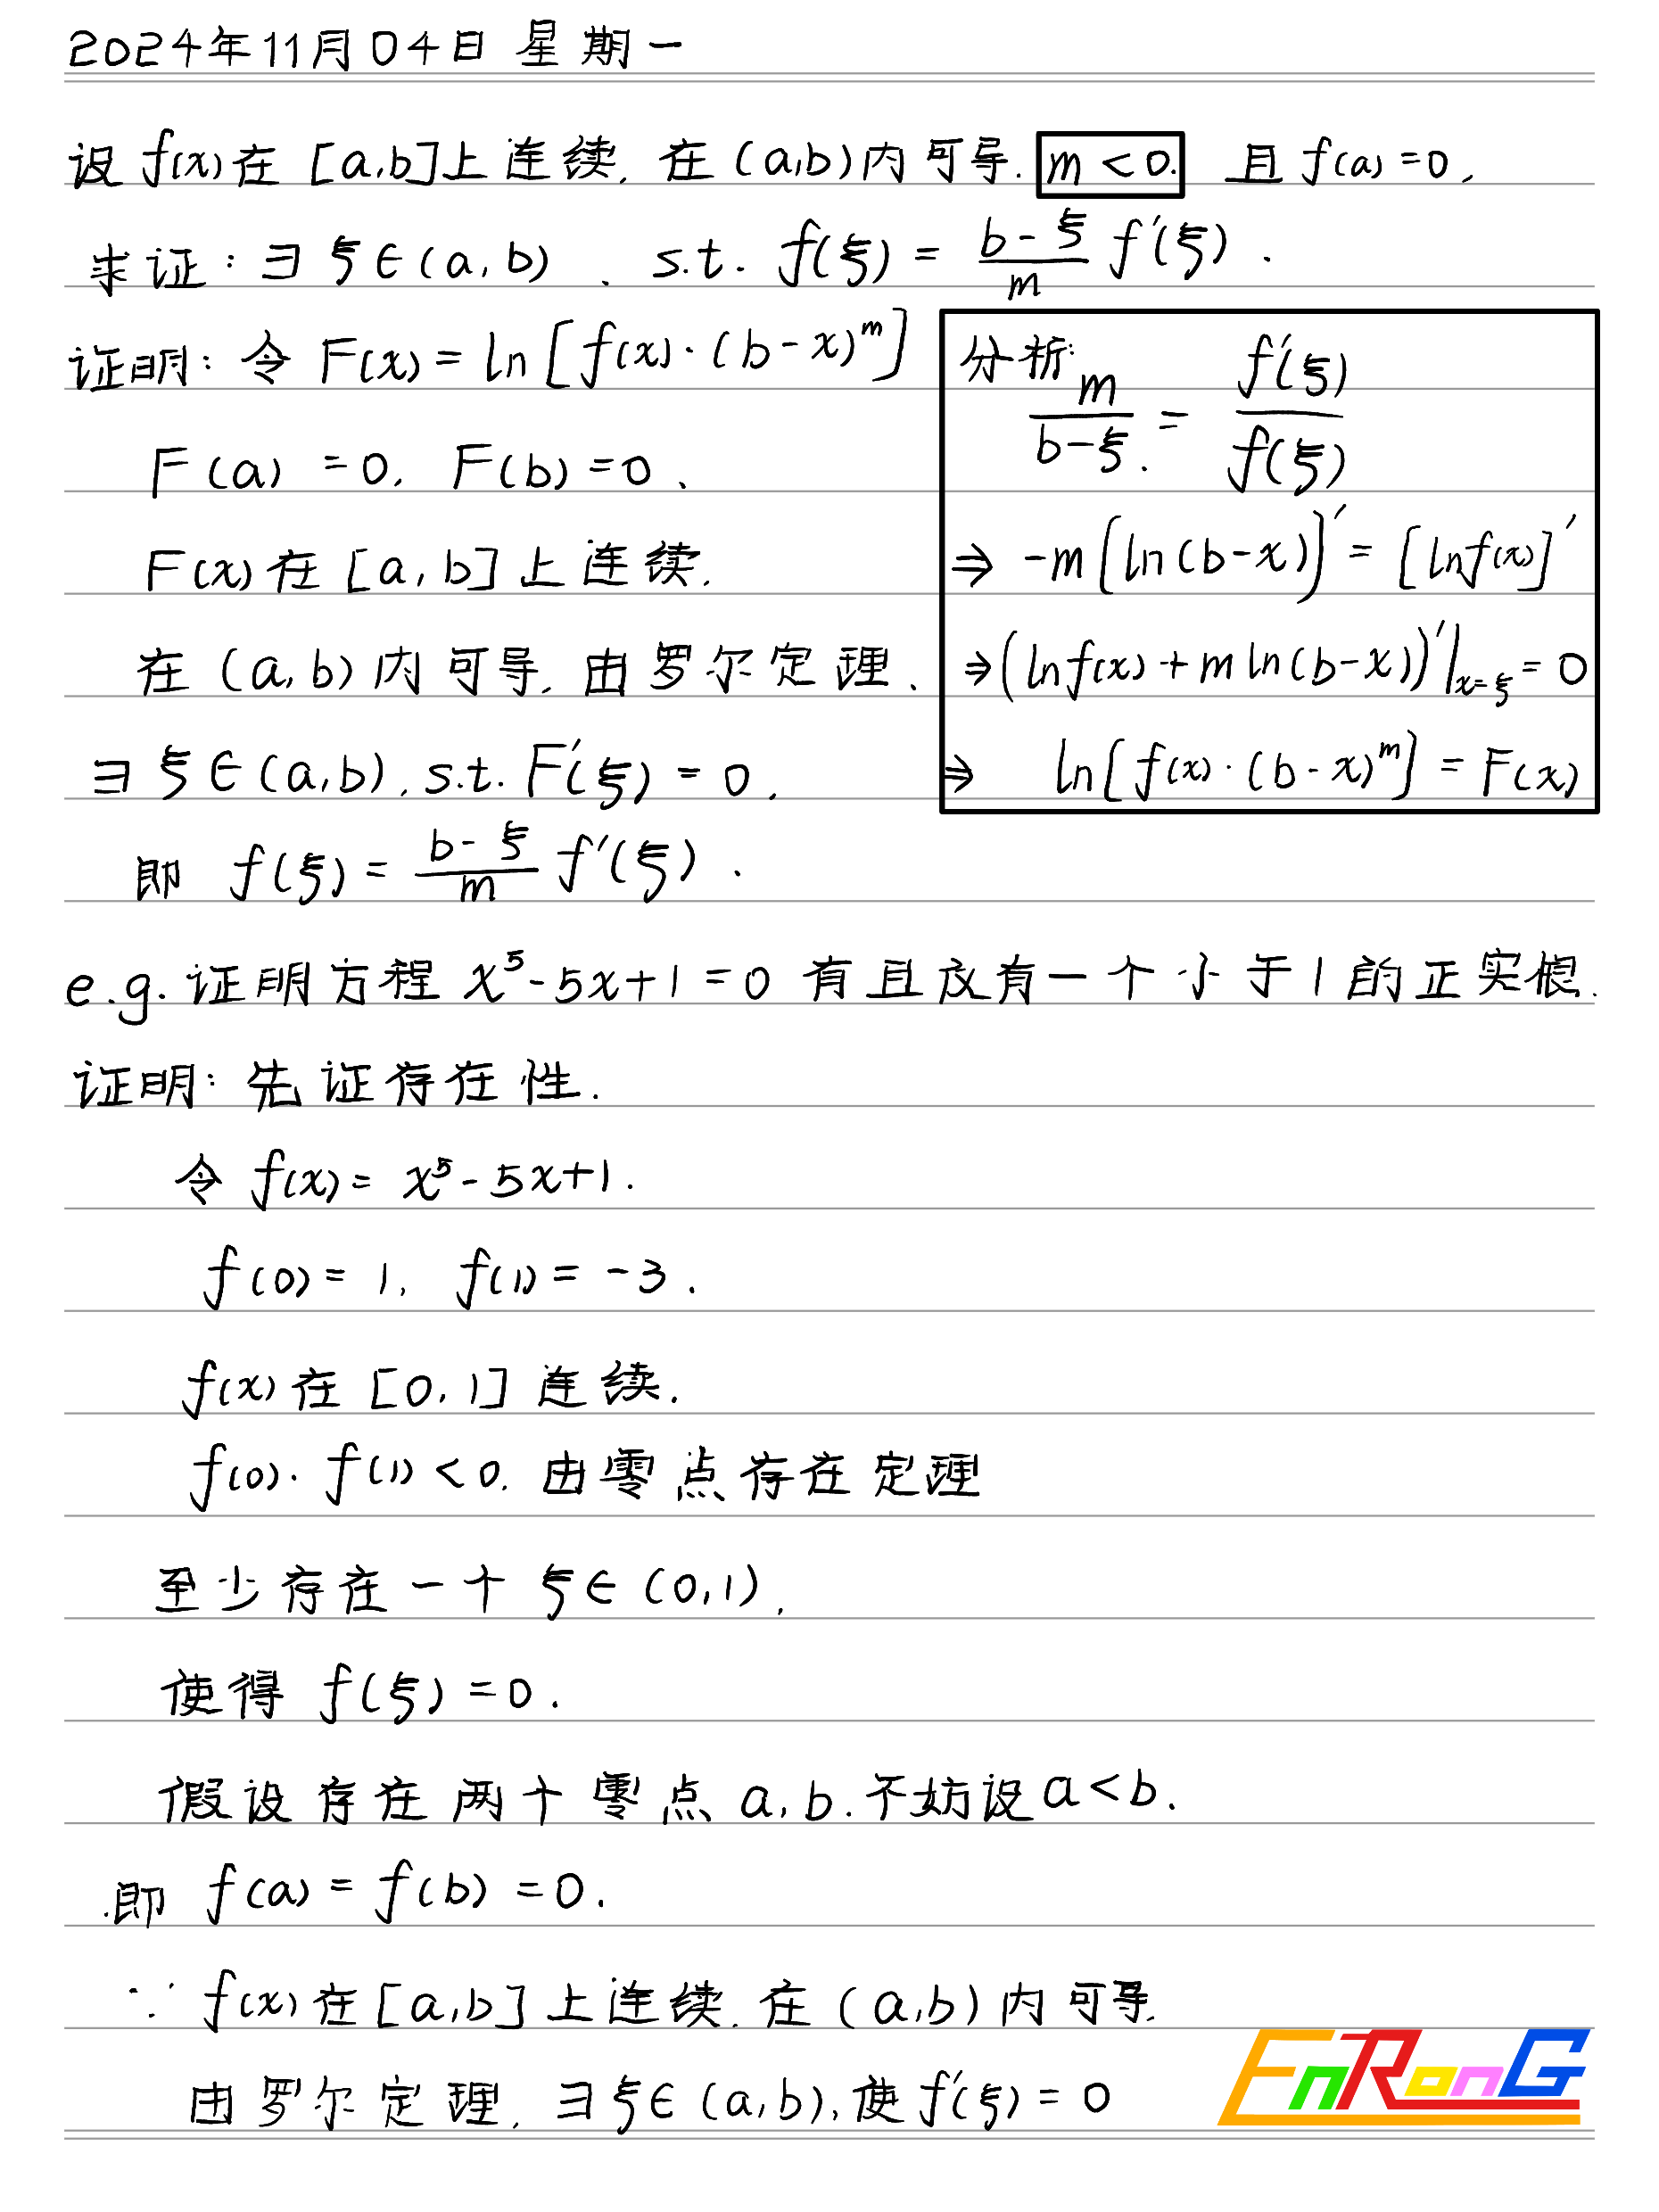 2024年11月04日 星期一
设 f(x) 在 [a,b] 上连续, 在 (a,b) 内可导. m < 0. 且 f(a) = 0,
求证: ∃ ξ ∈ (a, b) , s.t. f(ξ) = \frac{b-ξ}{m} f'(ξ) .
证明: 令 F(x) = ln [ f(x) · (b-x)^m ]
F(a) = 0, F(b) = 0 ,
F(x) 在 [a, b] 上连续.
在 (a, b) 内可导, 由罗尔定理 ,
∃ ξ ∈ (a,b), s.t. F'(ξ) = 0 ,
即 f(ξ) = \frac{b-ξ}{m} f'(ξ) .
分析:
\frac{m}{b-ξ} = \frac{f'(ξ)}{f(ξ)}
⇒ -m [ln(b-x)]' = [lnf(x)]'
⇒ (lnf(x) + m ln(b-x))'|_{x=ξ} = 0
⇒ ln[f(x) · (b-x)^m] = F(x)
e.g. 证明方程 x^5 - 5x + 1 = 0 有且仅有一个小于1的正实根.
证明: 先证存在性.
令 f(x) = x^5 - 5x + 1 .
f(0) = 1, f(1) = -3 .
f(x) 在 [0, 1] 连续.
f(0) · f(1) < 0. 由零点存在定理
至少存在一个 ξ ∈ (0,1) ,
使得 f(ξ) = 0 .
假设存在两个零点 a, b. 不妨设 a < b.
即 f(a) = f(b) = 0 .
∵ f(x) 在 [a,b] 上连续, 在 (a,b) 内可导,
由罗尔定理, ∃ ξ ∈ (a,b), 使 f'(ξ) = 0
EnRonG